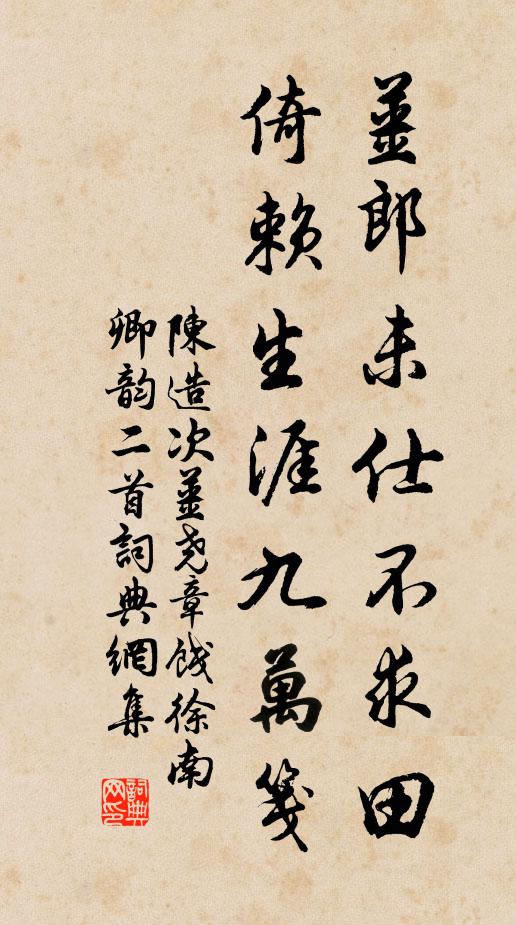 薑郎未仕不求田
倚賴生涯九萬箋
陳造次薑尧章餞徐南
卿韵二首詞典網集
詞典网印